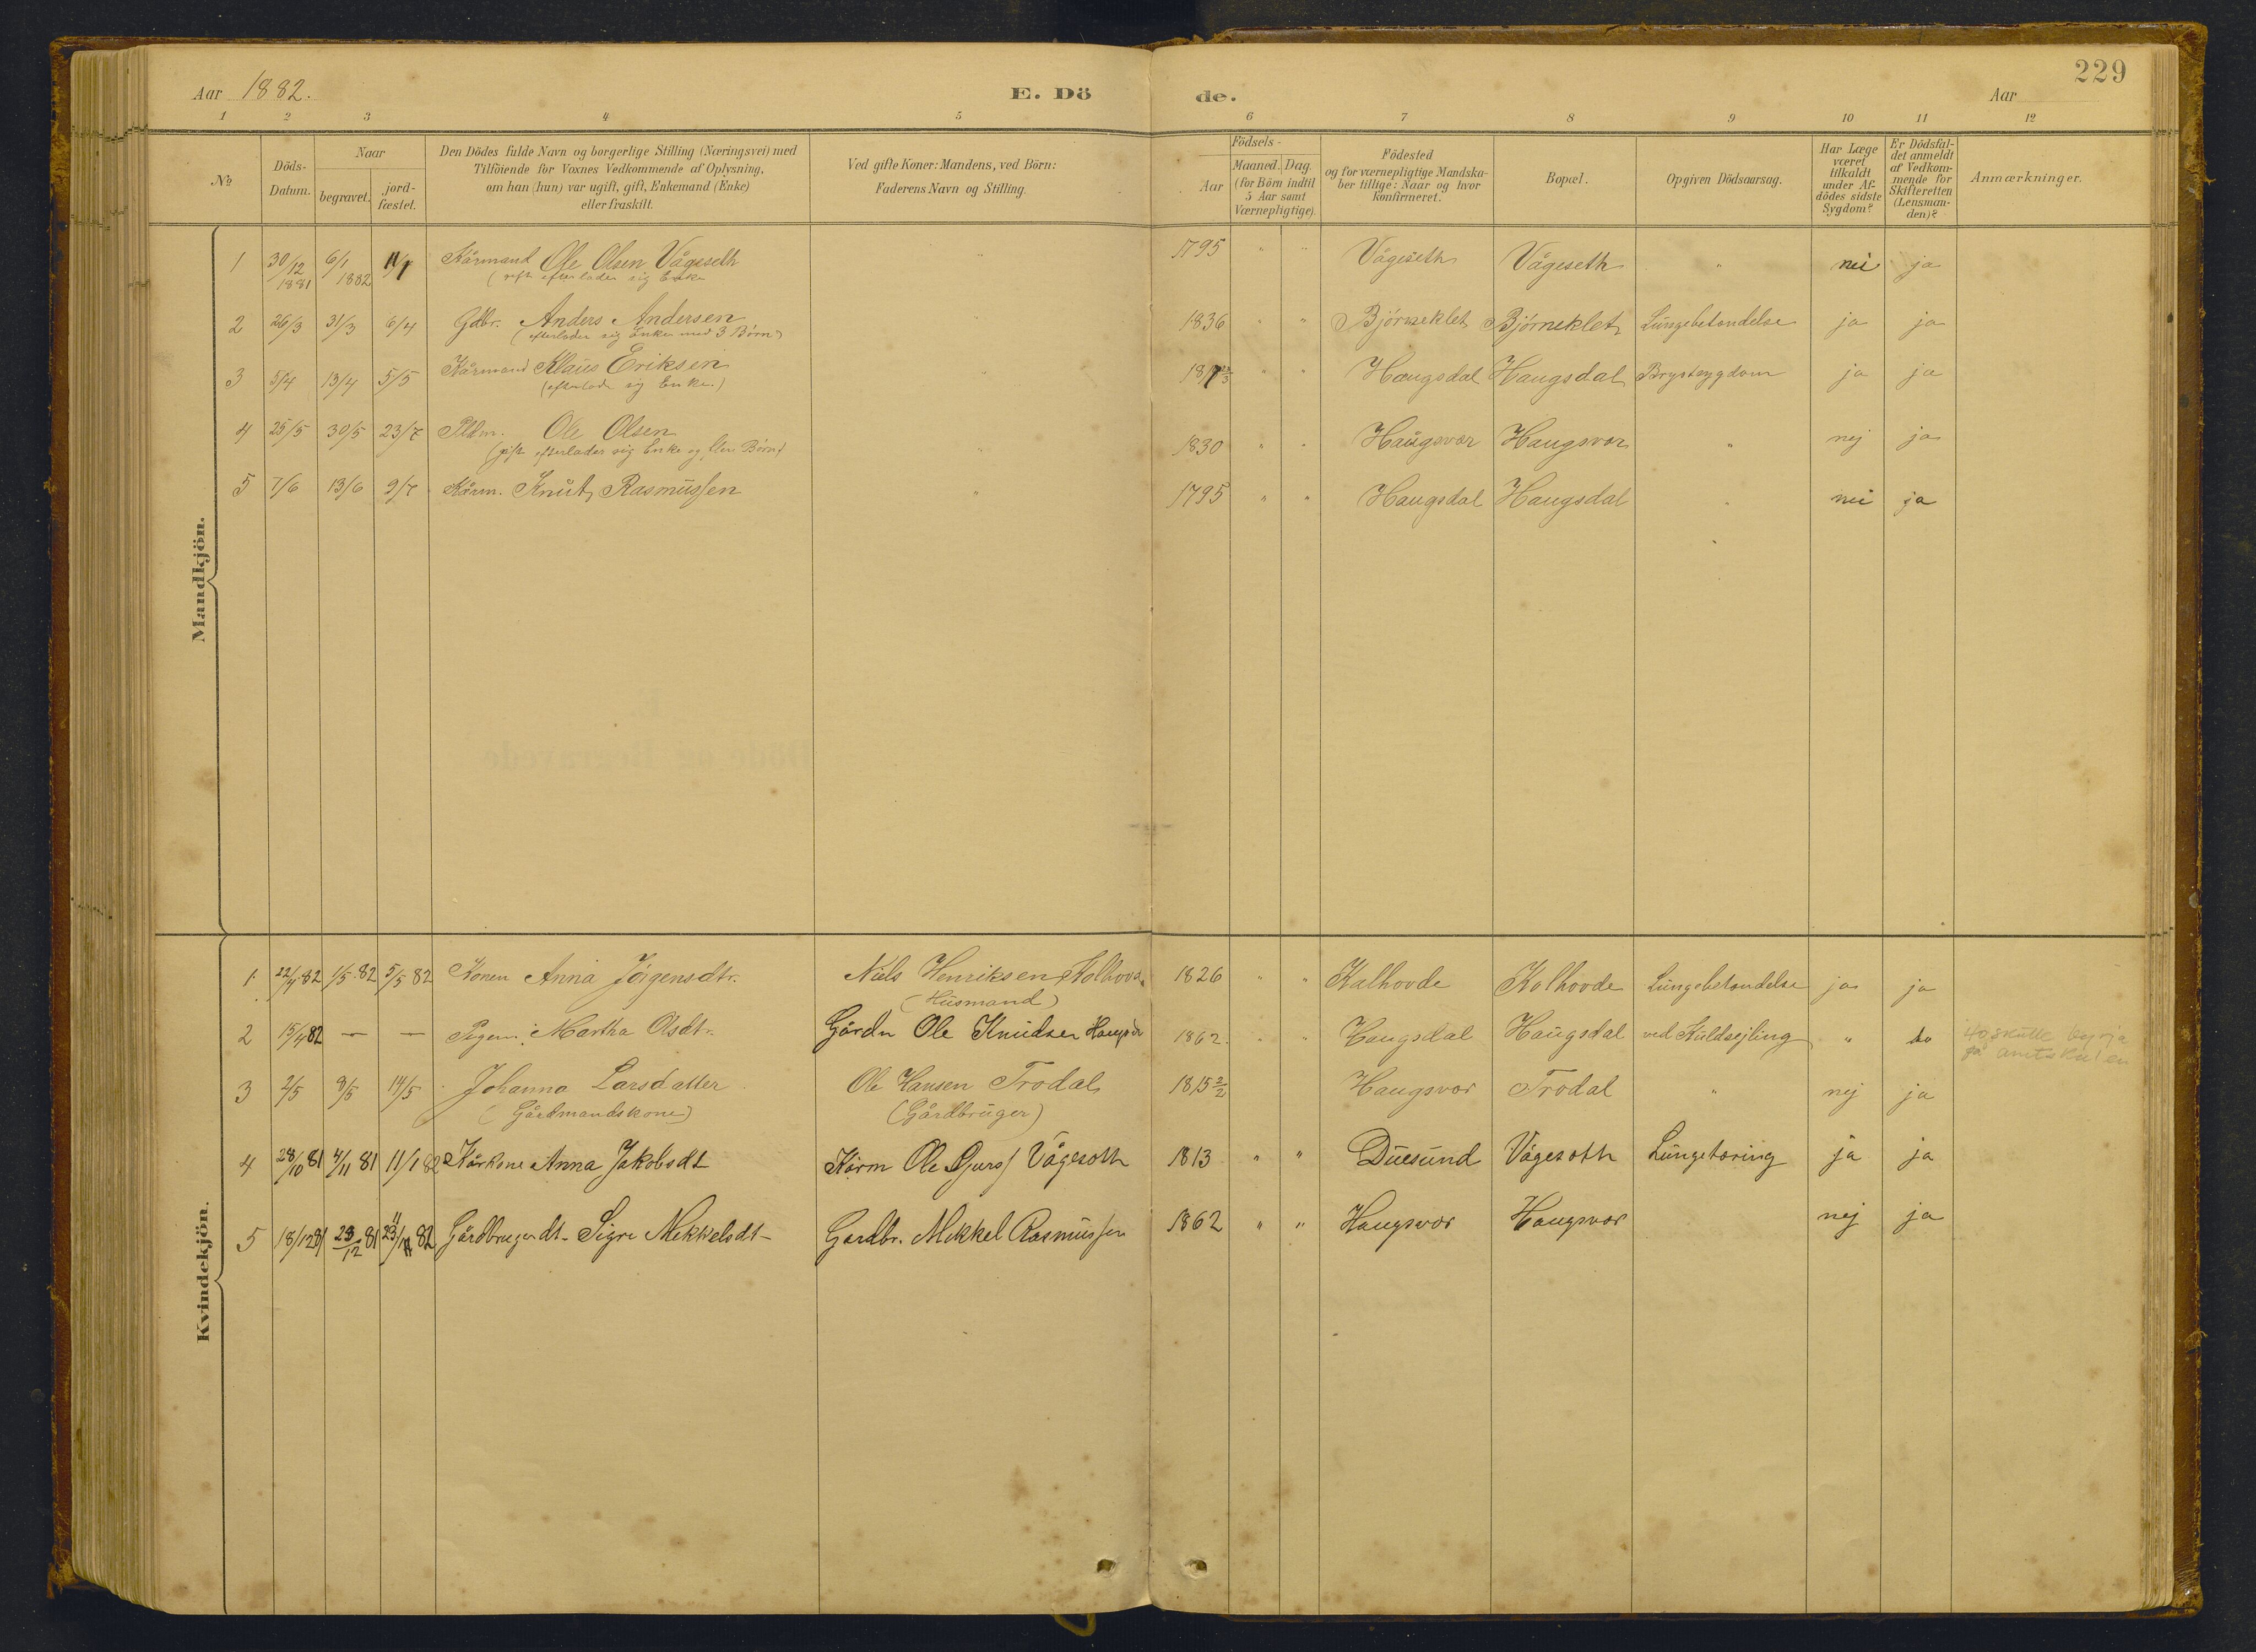 229
Aar 1882. E. Dö de. Aar
1 2 3 4 5 6 7 8 9 10 11 12
No
Döds-
Datum.
Naar
begravet. jord-
fæstet.
Den Dödes fulde Navn og borgerlige Stilling (Næringsvei) med
Tilföiende for Voxnes Vedkommende af Oplysning,
om han (hun) var ugift, gift, Enkemand (Enke)
eller fraskilt.
Ved gifte Koner: Mandens, ved Börn:
Faderens Navn og Stilling.
Födsels-
Aar
Maaned. Dag.
(for Börn indtil
5 Aar samt
Værnepligtige).
Födested
og for værnepligtige Mandska-
ber tillige: Naar og hvor
konfirmeret.
Bopæl.
Opgiven Dödsaarsag.
Har Læge
været
tilkaldt
under Af-
dödes sidste
Sygdom?
Er Dödsfal-
det anmeldt
af Vedkom-
mende for
Skifteretten
(Lensman-
den)?
Anmærkninger.
Mandkjön.
1 30/12 1881 6/1 1882 11/1 Kårmand Ole Olsen Vågeseth " 1795 " " Vågeseth Vågeseth " nei ja
(gift efterlader sig Enke
2 26/3 31/3 6/4 Gdbr. Anders Andersen 1836 " " Bjørneklet Bjørneklet Lungebetændelse ja ja
(efterlader sig Enke med 3 Børn)
3 5/4 13/4 5/5 Kårmand Klaus Eriksen " " Haugsdal Haugsdal Brystsygdom ja ja
(efterlader sig Enke.)
4 25/5 30/5 23/7 Ole Olsen 1830 " " Haugsvær Haugsvær " nej ja
(gift efterlader sig Enke og flere Børn)
5 7/6 13/6 9/7 Kårm. Knut Rasmussen " 1795 " " Haugsdal Haugsdal " nei ja
Kvindekjön.
1. 22/4 82 1/5 82 5/5 82 Konen Anna Jörgensdtr. Niels Henriksen Kolhovde 1826 " " Kalhovde Kolhovde Lungebetændelse ja ja
(Husmand)
2 15/4 82 — — Pigen Martha Olsdtr. Gårdn Ole Knudsen 1862. " " Haugsdal Haugsdal ved Kuldsejling " 
skulle byrja
på amtskulen
3 2/5 9/5 14/5 Johanna Larsdatter Ole Hansen Trodal 1815 2/2 Haugsvær Trodal " nej ja
(Gårdmandskone) (Gårdbruger)
4 28/10 81 4/11 81 11/1 82 Kårkone Anna Jakobsdt Kårm Ole Vågesöth 1813 " " Duesund Vågesöth Lungetæring ja ja
5 18/12 81 23/12 81 82 Gårdbrugerdt. Sigri Mikkelsdt— Gardbr. Mikkel Rasmussen 1862 " " Haugsvær Haugsvær nej ja